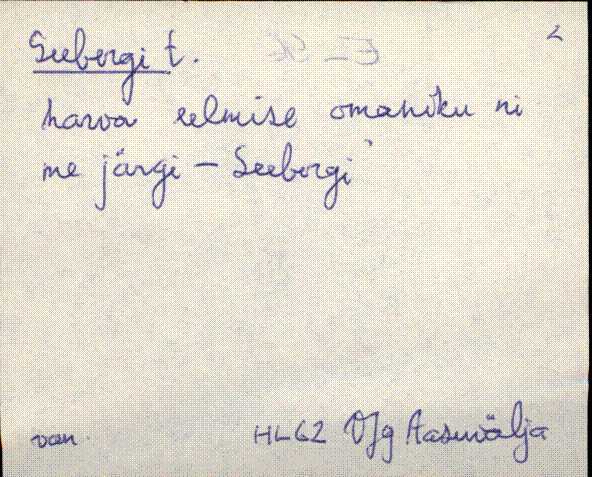 Seebergi t.
harva eelmise omaniku ni
me järgi – Seebergi
van. HL62 VJg Aasuvälja